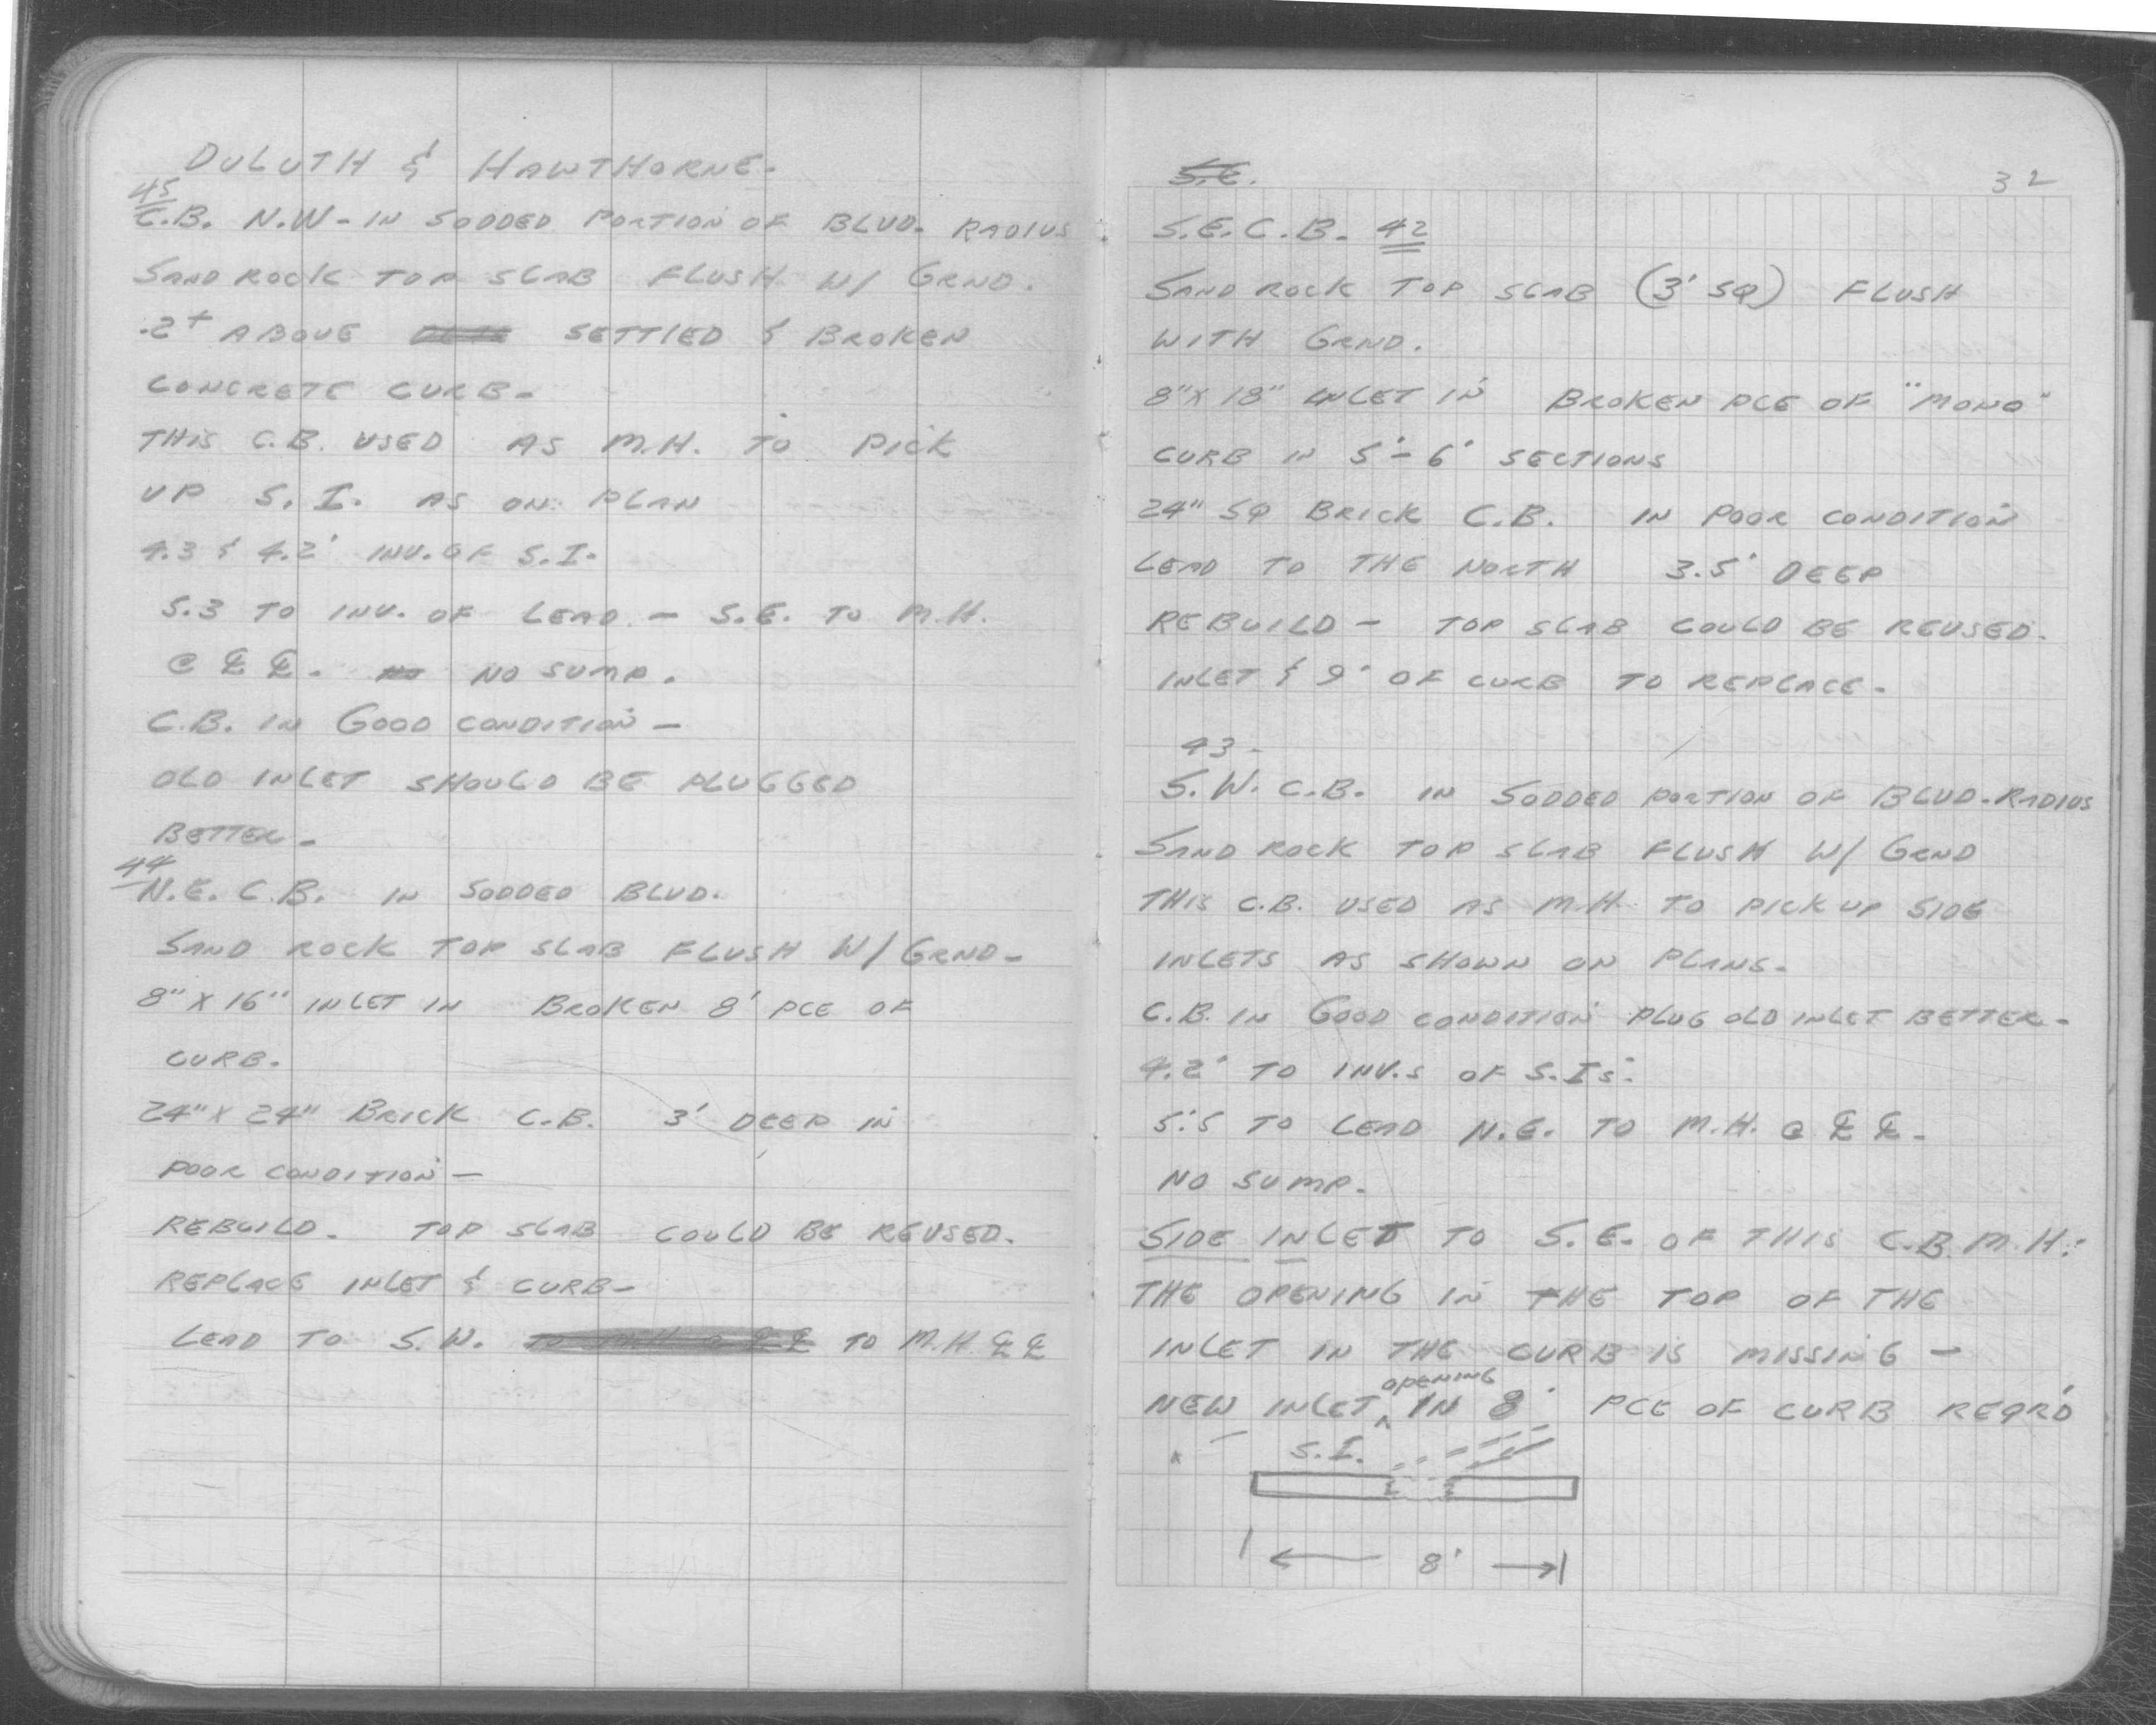 DULUTH & HAWTHORNE.
45
C.B. N.W - IN SODDED PORTION OF BLVD. RADIUS
SAND ROCK TOP SLAB FLUSH W/ GRND.
.2+ ABOVE SETTLED & BROKEN
CONCRETE CURB-
THIS C.B. USED AS M.H. TO PICK
UP S.I. AS ON PLAN
4.3 & 4.2' INV. OF S.I.
5.3 TO INV. OF LEAD - S.E. TO M.H.
@ ℄ ℄. NO SUMP.
C.B. IN GOOD CONDITION -
OLD INLET SHOULD BE PLUGGED
BETTER -
44
N.E. C.B. IN SODDED BLVD.
SAND ROCK TOP SLAB FLUSH W/ GRND-
8" X 16" INLET IN BROKEN 8' PCE OF
CURB.
24" X 24" BRICK C.B. 3' DEEP IN
POOR CONDITION -
REBUILD. TOP SLAB COULD BE REUSED.
REPLACE INLET & CURB-
LEAD TO S.W. TO M.H ℄ ℄
S.E.
32
S.E. C.B. 42
SAND ROCK TOP SLAB (3' SQ) FLUSH
WITH GRND.
8" X 18" INLET IN BROKEN PCE OF "MONO"
CURB IN 5' - 6' SECTIONS
24" SQ BRICK C.B. IN POOR CONDITION
LEAD TO THE NORTH 3.5' DEEP
REBUILD - TOP SLAB COULD BE REUSED.
INLET & 9' OF CURB TO REPLACE.
43 -
S.W. C.B. IN SODDED PORTION OF BLVD. RADIUS
SAND ROCK TOP SLAB FLUSH W/ GRND
THIS C.B. USED AS M.H. TO PICK UP SIDE
INLETS AS SHOWN ON PLANS.
C.B. IN GOOD CONDITION PLUG OLD INLET BETTER -
4.2' TO INV.S OF S.I.s.
5.5 TO LEAD N.E. TO M.H. @ ℄ ℄ -
NO SUMP.
SIDE INLET TO S.E. OF THIS C.B. M.H.:
THE OPENING IN THE TOP OF THE
INLET IN THE CURB IS MISSING -
NEW INLET ^ OPENING IN 8' PCE OF CURB REQR'D
S.I.
8'